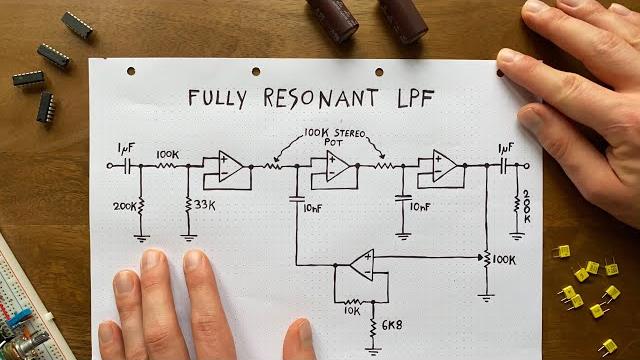 FULLY RESONANT LPF
100K STEREO
POT
1µF
100K
+
-
+
-
+
-
1µF
200K
33K
10nF
10nF
200K
+
-
100K
10K
6K8